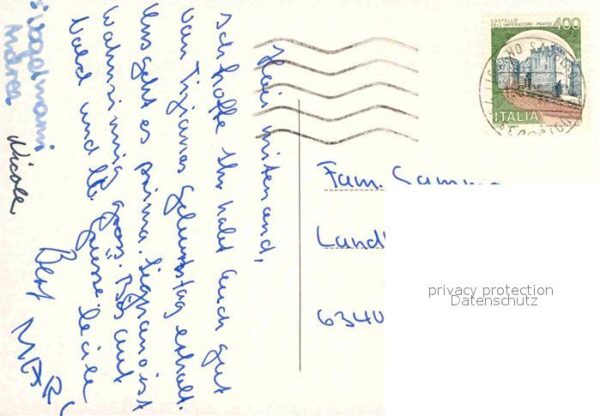 Hoi mitenand,
Ich hoffe Ihr habt euch gut
von Tizianas Geburtstag erholt.
Uns geht es prima. Lignano ist
wahnsinnig gross. Bis
bald und lb. Grüsse. Cécile
Beat
MARC
Nicole
Andrea
CASTELLO
DELL'IMPERATORE - PRATO
400
ITALIA
Fam.
Land
6340
privacy protection
Datenschutz